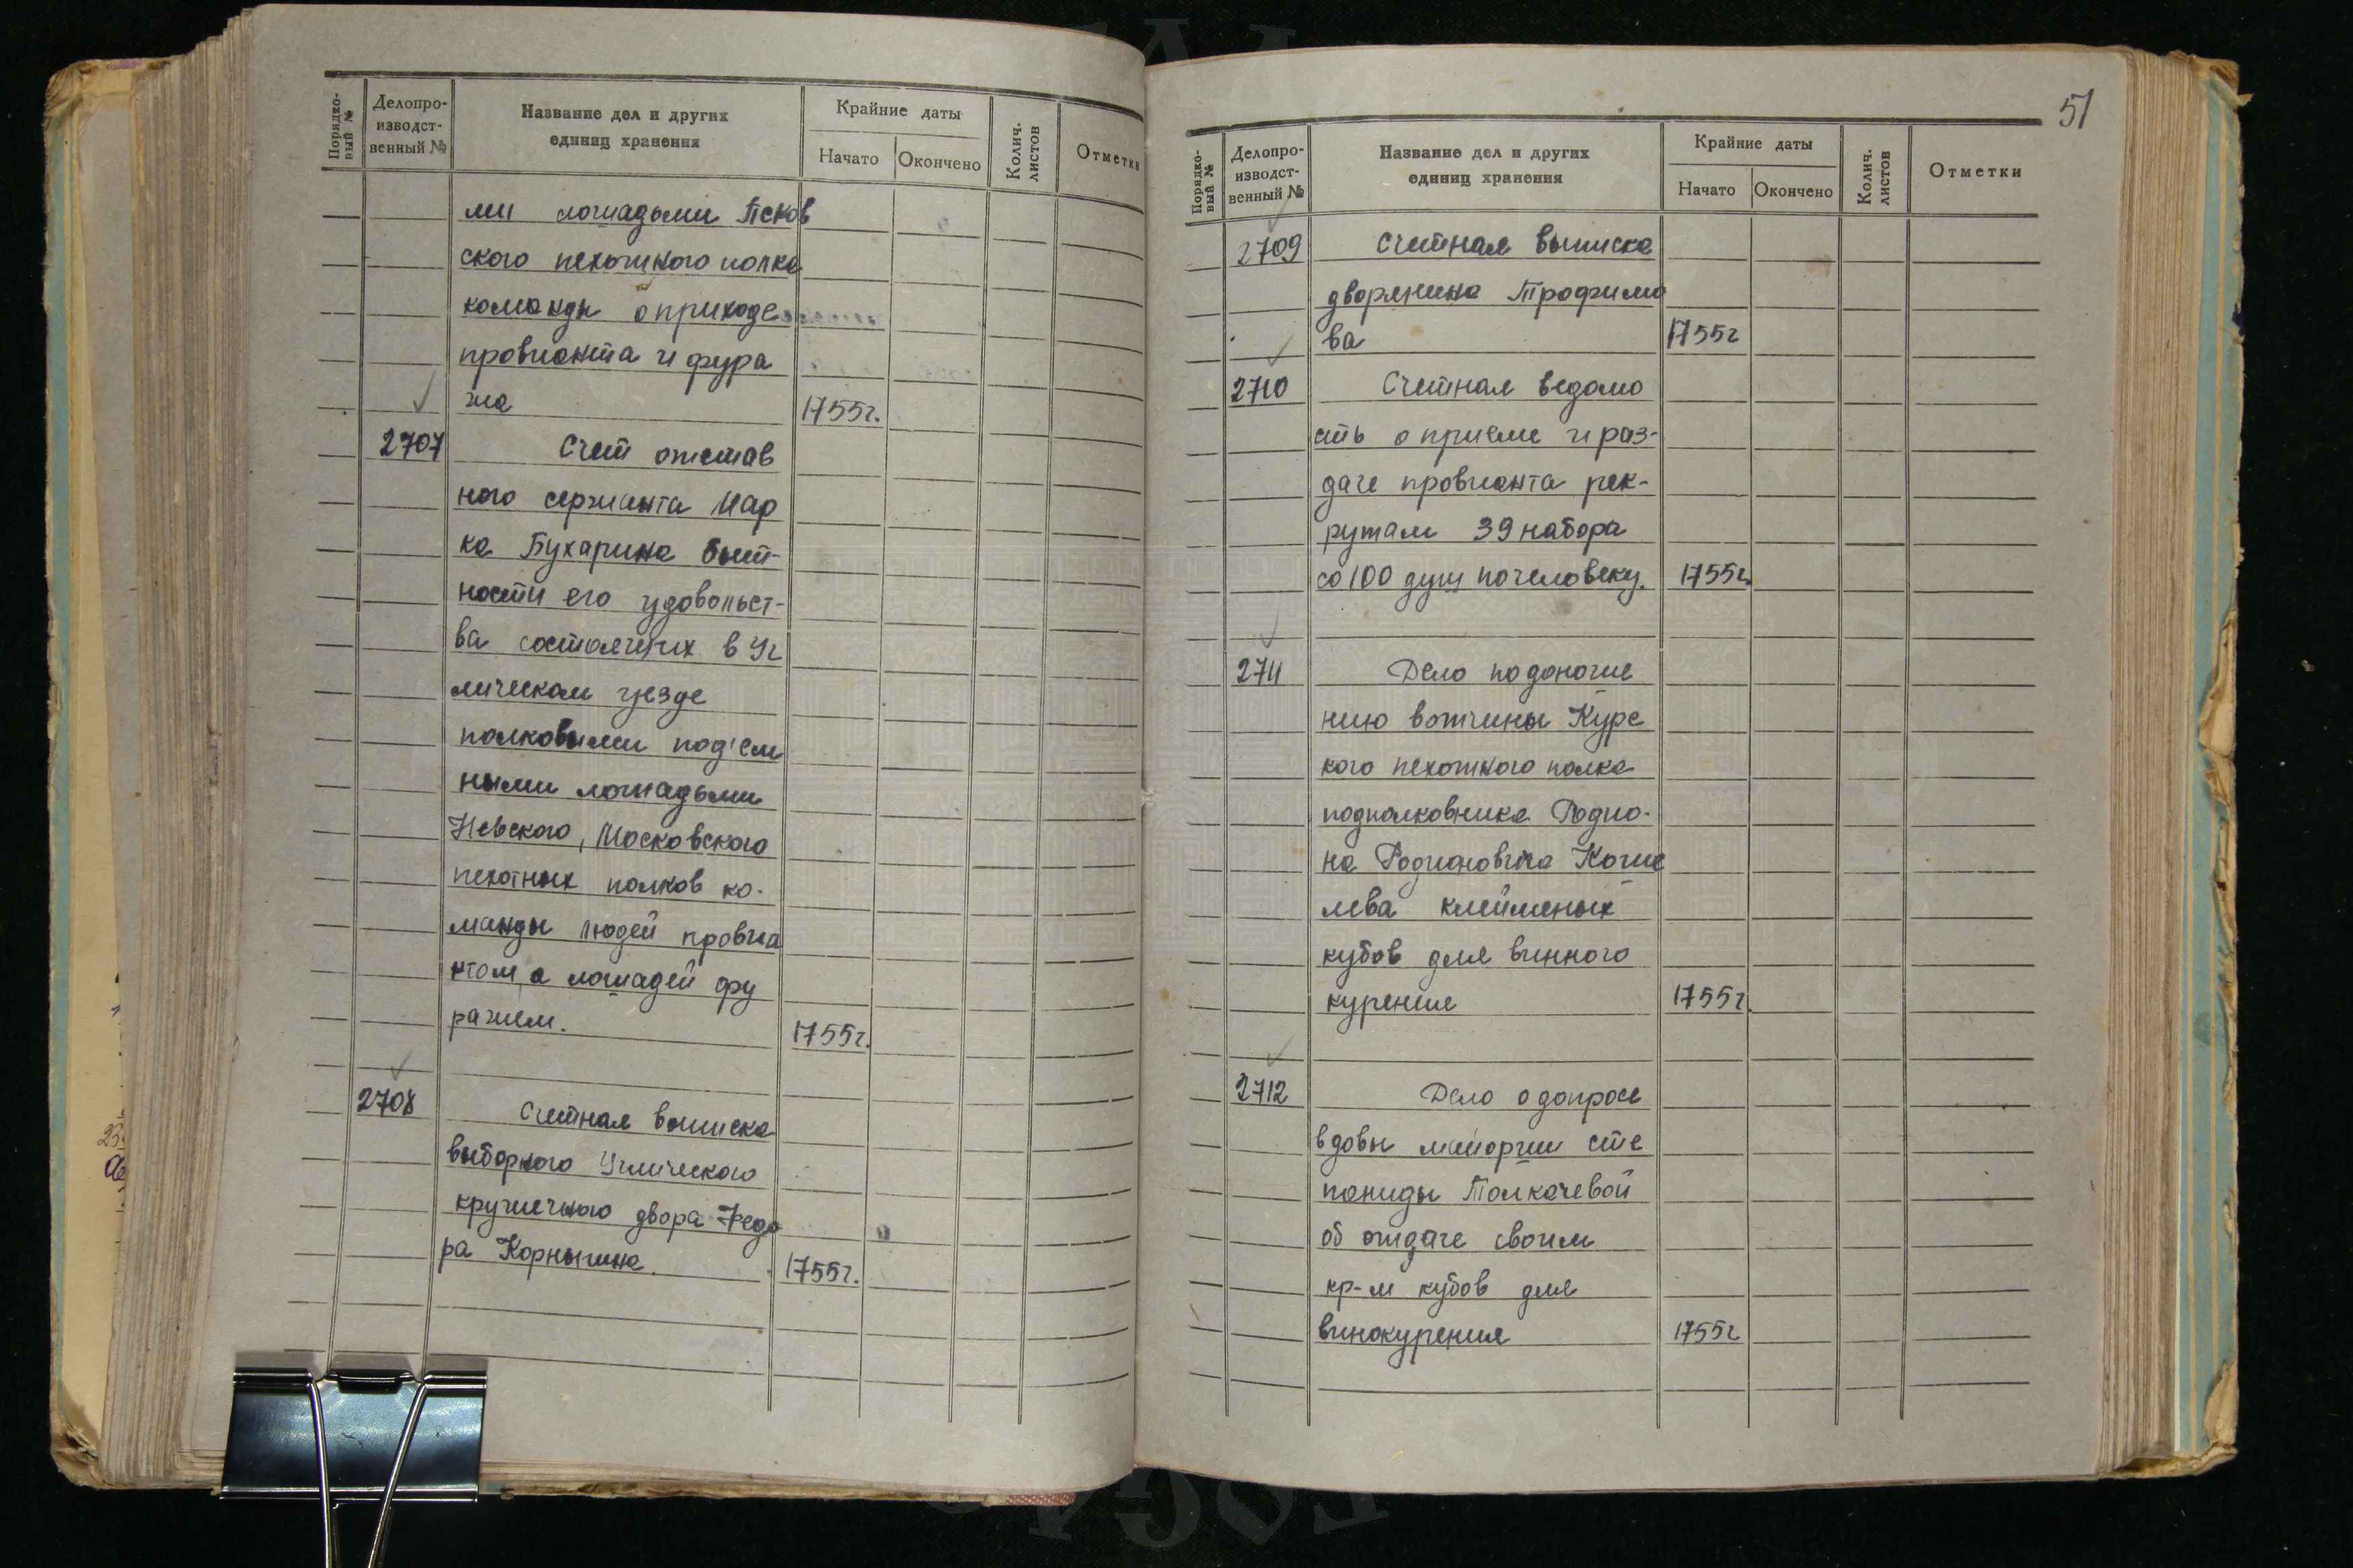 Порядко-
вый №
Делопро-
изводст-
венный №
Название дел и других
единиц хранения
Крайние даты
Начато
Окончено
Колич.
листов
Отметки
ми лошадьми Псков
ского пехотного полка
команды о приходе
провианта и фура
жа 1755г.
2707 Счет отстав
ного сержанта Мар
ка Бухарина быт-
ности его удовольст-
ва состоящих в Уг
лическом уезде
полковыми под'ем
ными лошадьми
Невского, Московского
пехотных полков ко-
манды людей провиа
нтом а лошадей фу
ражем. 1755г.
2708 Счетная выписка
выборного Угличского
кружечного двора Федо
ра Корныгина. 1755г.
51
Порядко-
вый №
Делопро-
изводст-
венный №
Название дел и других
единиц хранения
Крайние даты
Начато
Окончено
Колич.
листов
Отметки
2709 Счетная выписка
дворянина Трофимо
ва 1755г
2710 Счетная ведомо
сть о приеме и раз-
даче провианта рек-
рутам 39 набора
со 100 душ по человеку. 1755г.
2711 Дело по доноше
нию вотчины Курс
кого пехотного полка
подполковника Родио-
на Родионовича Коше
лева клейменых
кубов для винного
курения 1755г.
2712 Дело о допросе
вдовы майорши Сте
паниды Толкачевой
об отдаче своим
кр-м кубов для
винокурения 1755г